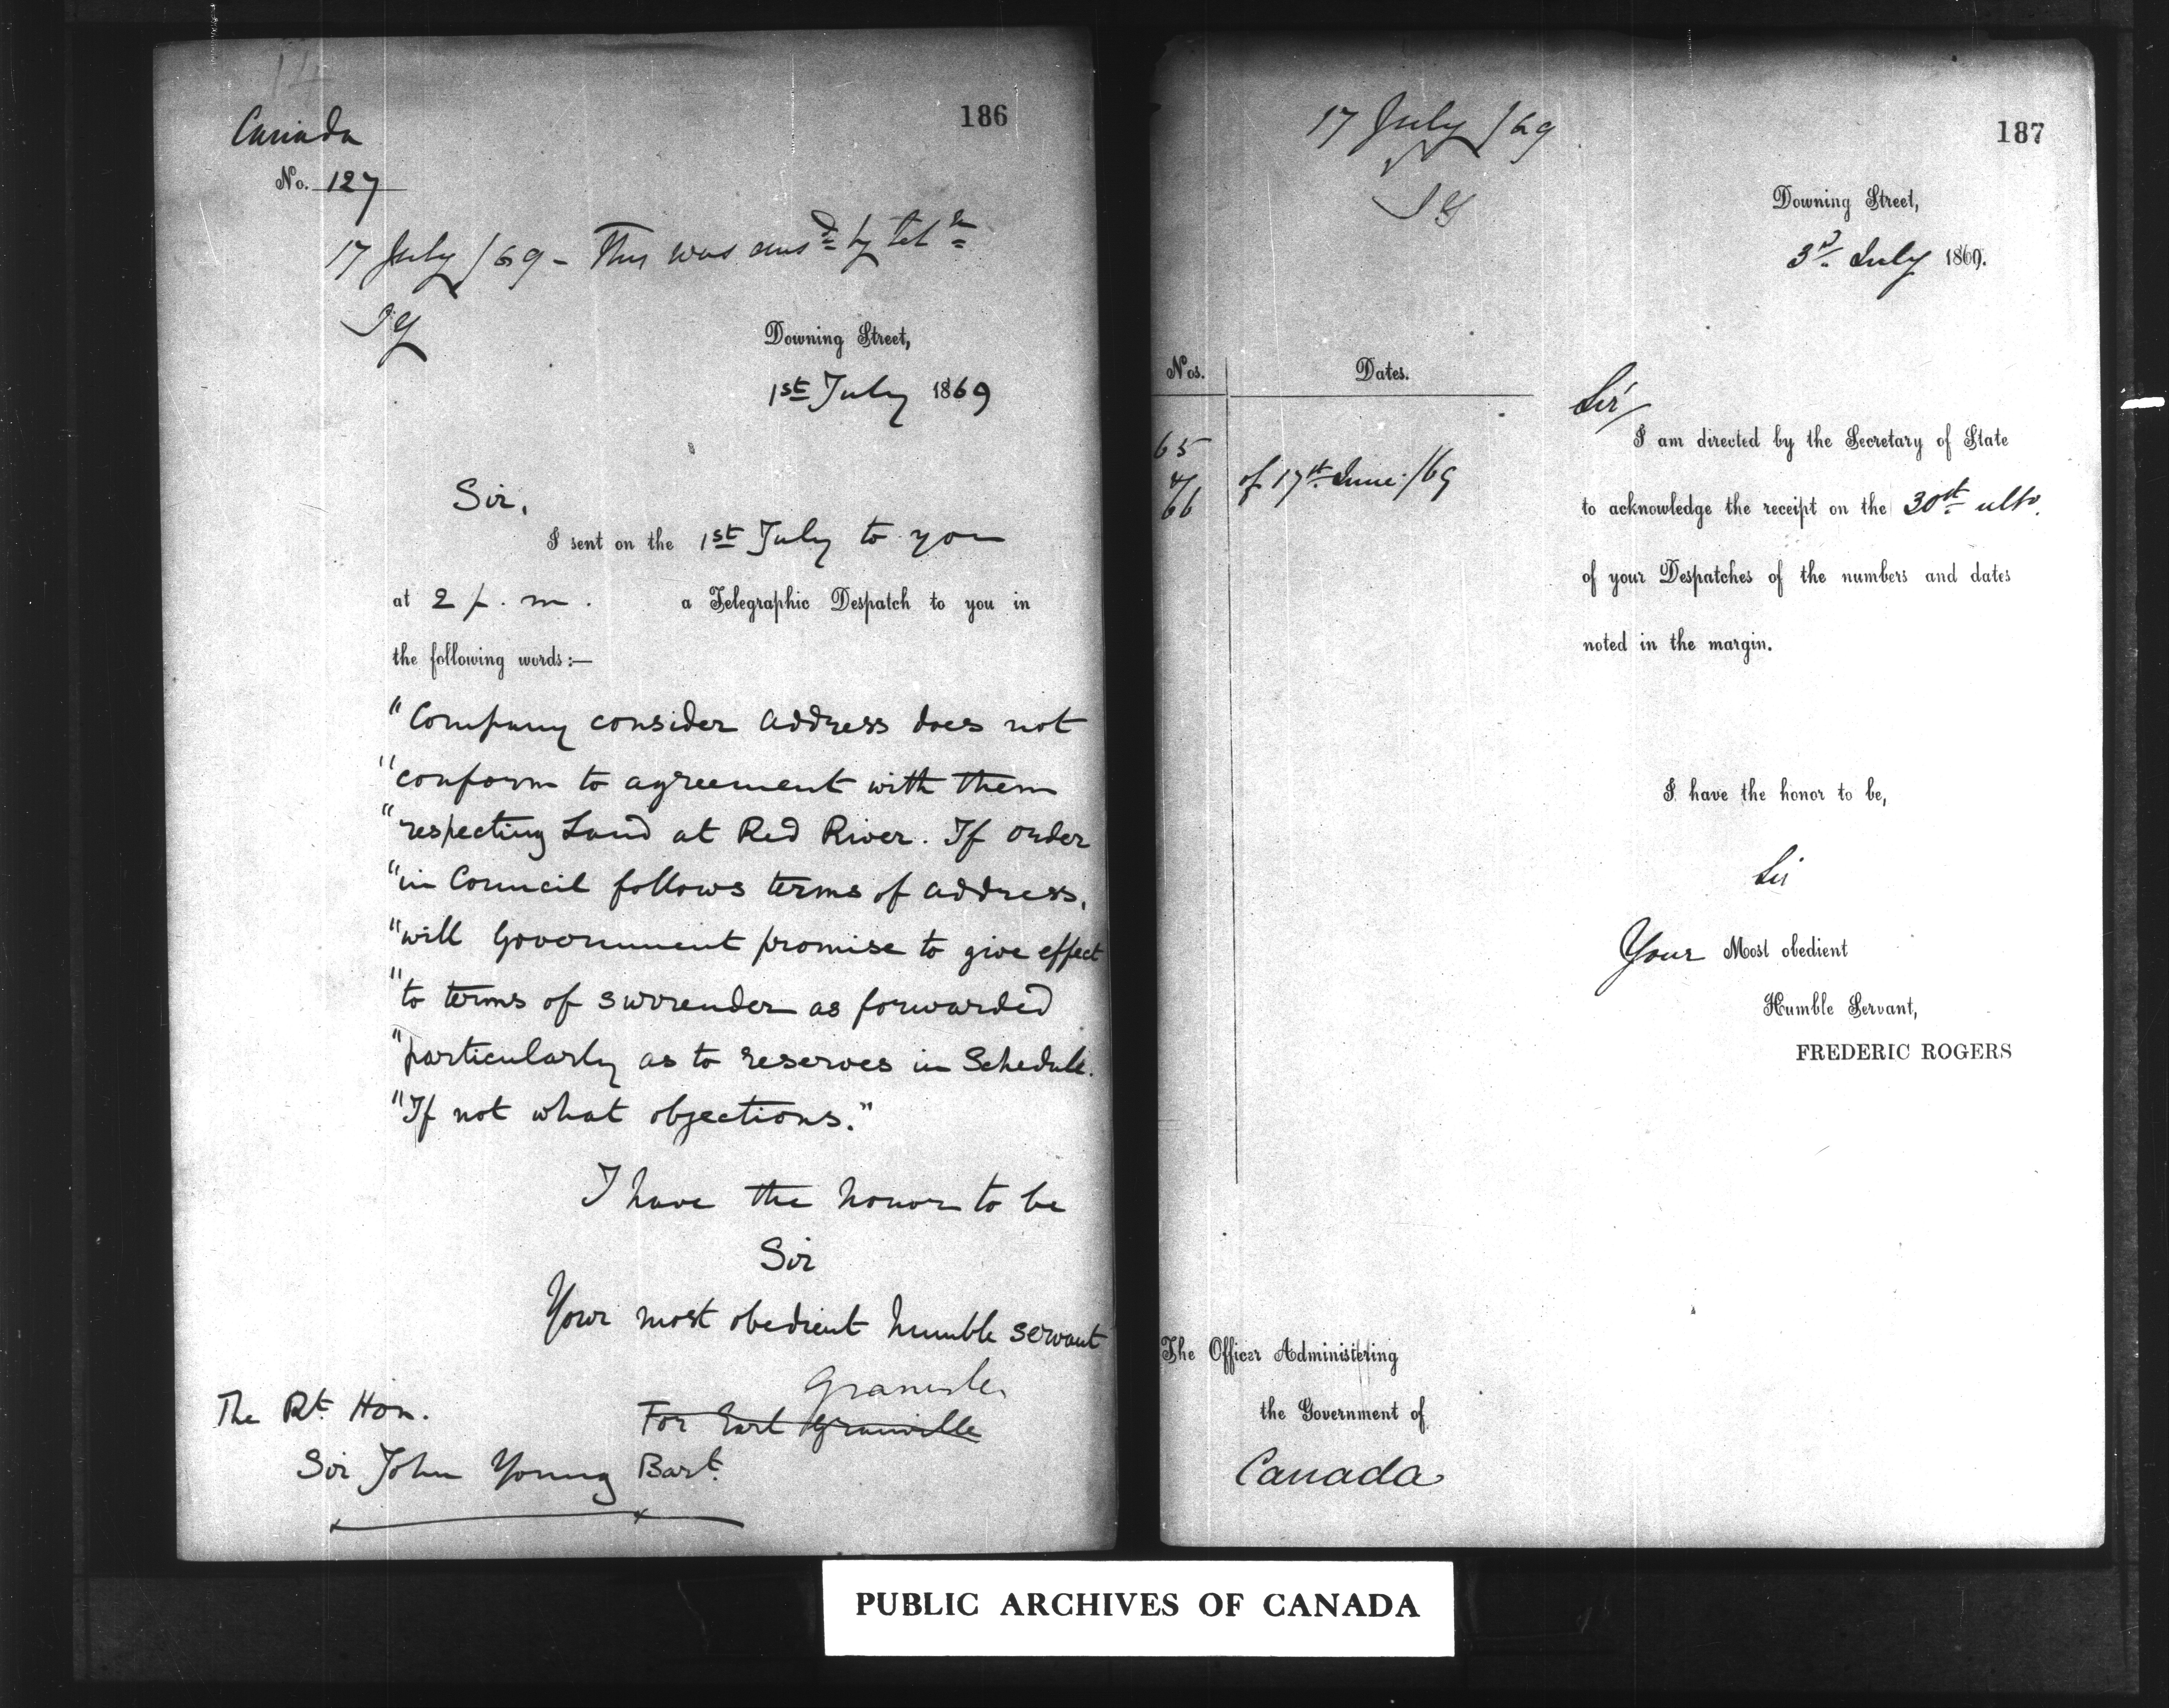 186
Canada
No. 127
17 July /69 - This was ansd by telm
JY
Downing Street,
1st July 1869
Sir,
I sent on the 1st July to you
at 2 p.m. a Telegraphic Despatch to you in
the following words:—
"Company consider address does not
"conform to agreement with them
"respecting Land at Red River. If order
"in Council follows terms of address,
"will Government promise to give effect
"to terms of surrender as forwarded
"particularly as to reserves in Schedule.
"If not what objections."
I have the honor to be
Sir
Your most obedient humble servant
Granville
For Earl Granville
The Rt. Hon.
Sir John Young Bart.
187
17 July /69
JY
Downing Street,
3rd July 1869.
Nos. Dates.
65
66 of 17th June /69
Sir/
I am directed by the Secretary of State
to acknowledge the receipt on the 30th ulto.
of your Despatches of the numbers and dates
noted in the margin.
I have the honor to be,
Sir
Your Most obedient
Humble Servant,
FREDERIC ROGERS
The Officer Administering
the Government of
Canada
PUBLIC ARCHIVES OF CANADA